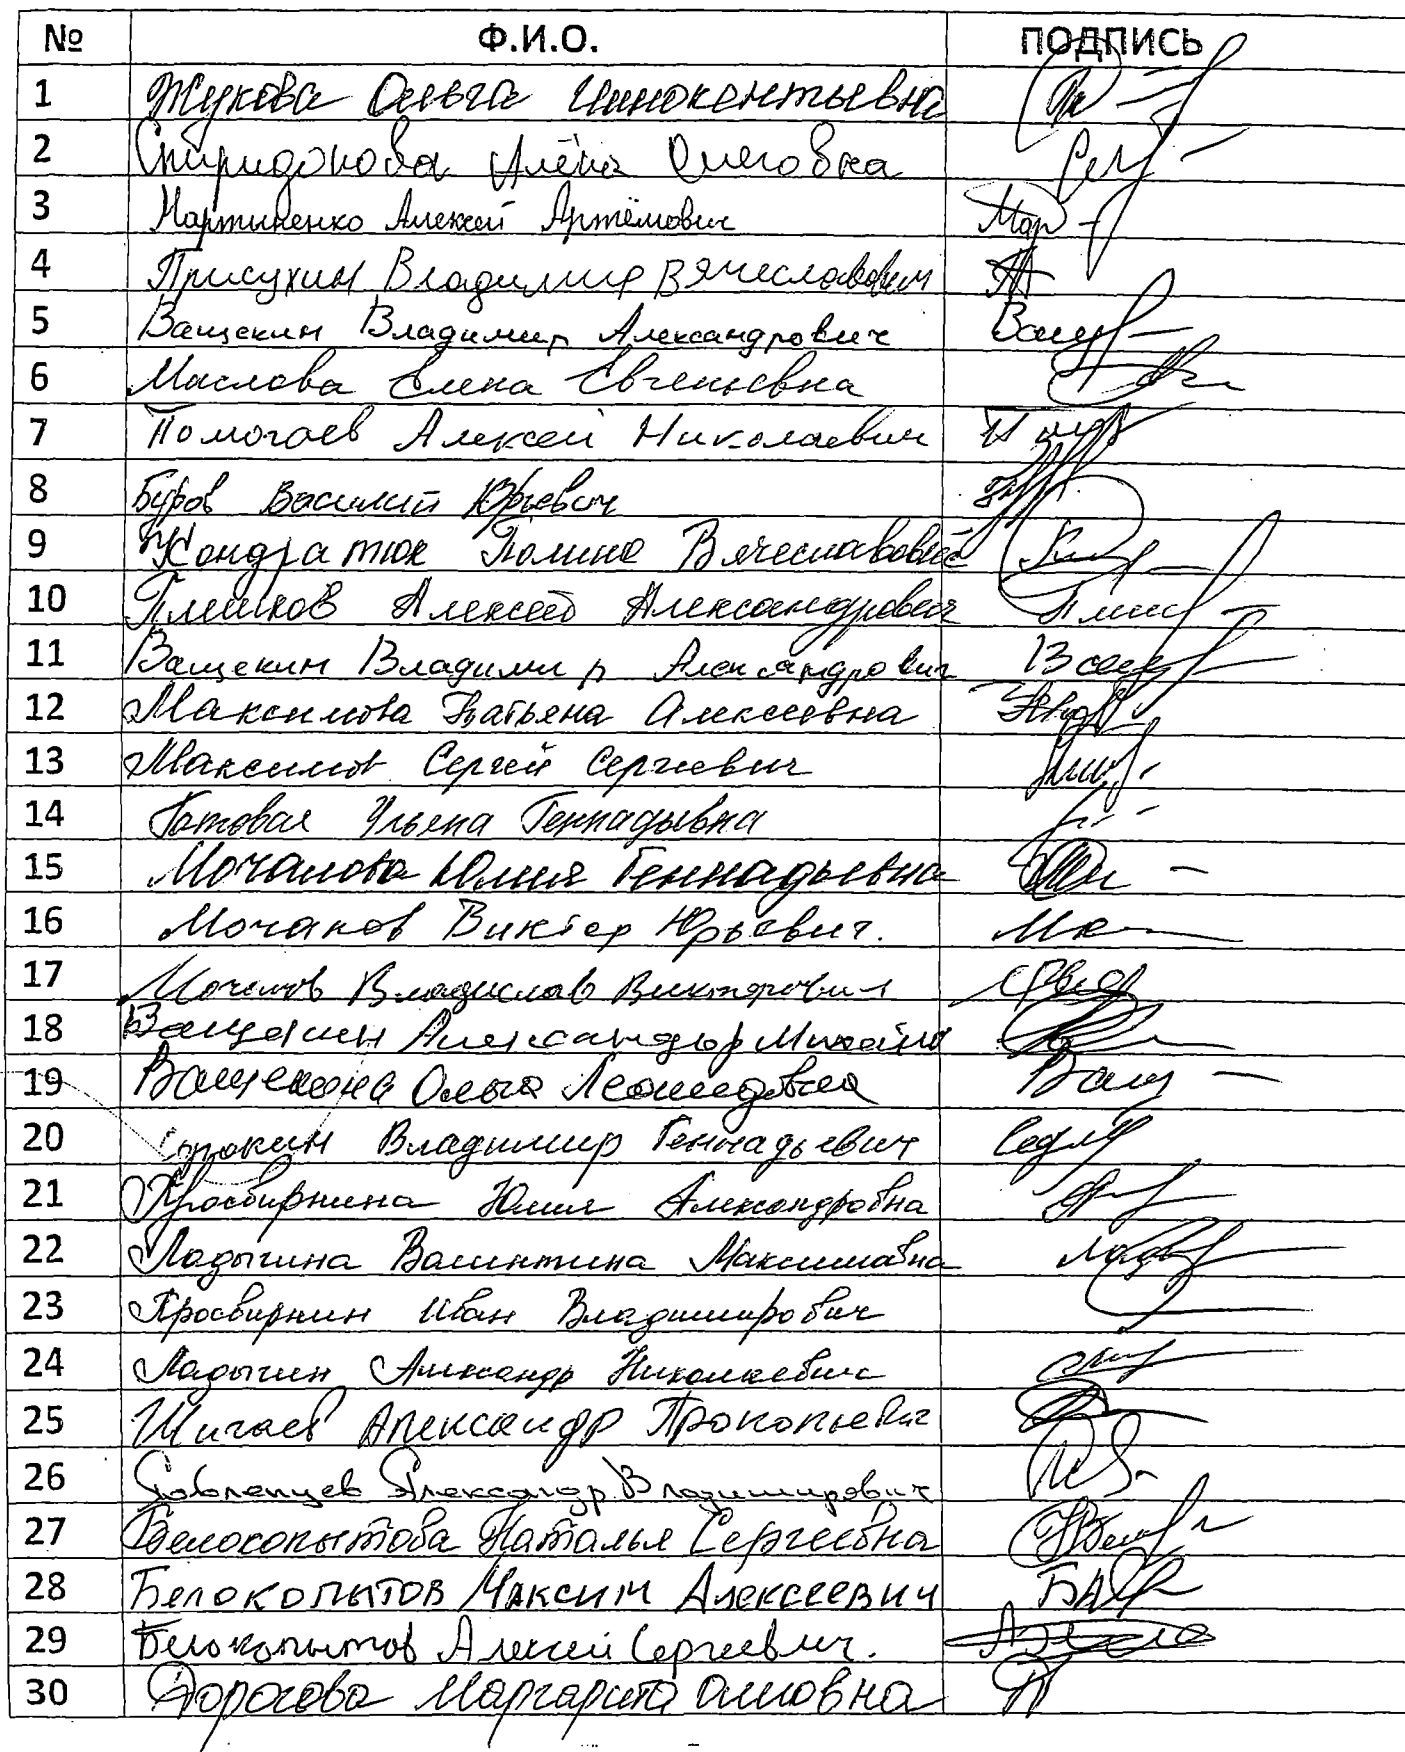 № Ф.И.О. ПОДПИСЬ
1 Жукова Ольга Иннокентьевна
2 Спиридонова Алёна Олеговна
3 Мартыненко Алексей Артёмович Мар
4 Присухин Владимир Вячеславович
5 Ващекин Владимир Александрович Ващ
6 Маслова Елена Евгеньевна
7 Помогаев Алексей Николаевич
8 Буров Василий Юрьевич
9 Кондратюк Полина Вячеславовна
10 Плешков Алексей Александрович
11 Ващекин Владимир Александрович
12 Максимова Татьяна Алексеевна
13 Максимов Сергей Сергеевич
14 Ульяна Геннадьевна
15 Мочалова Юлия Геннадьевна
16 Мочалов Виктор Юрьевич.
17 Мочалов Владислав Викторович
18 Ващекин Александр
19 Ващекина Ольга Леонидовна Ващ
20 Владимир Геннадьевич
21 Просвирнина Юлия Александровна
22 Ладыгина Валентина Максимовна
23 Просвирнин Иван Владимирович
24 Ладыгин Александр Николаевич
25 Шигаев Александр Прокопьевич
26 Александр Владимирович
27 Белокопытова Наталья Сергеевна
28 Белокопытов Максим Алексеевич
29 Белокопытов Алексей Сергеевич.
30 Дорогова Маргарита